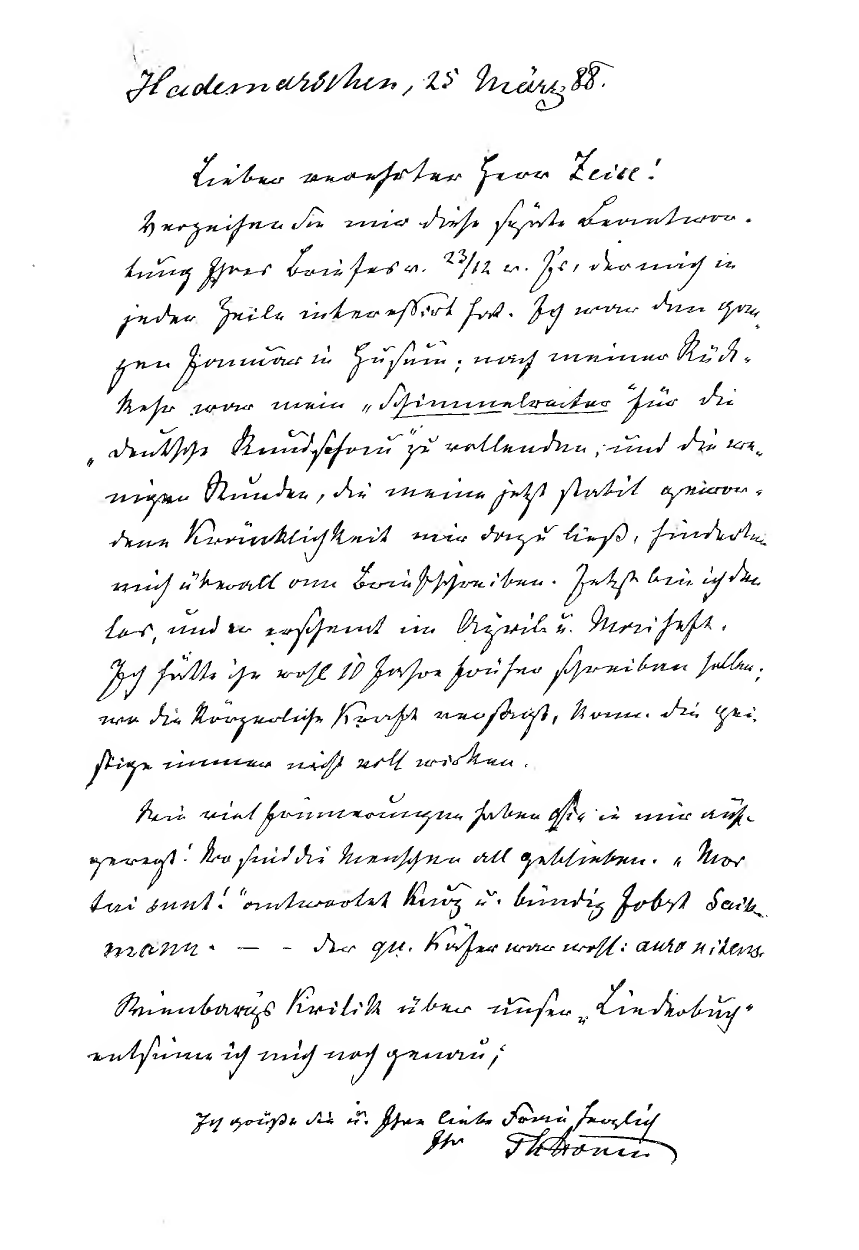 Hademarschen, 25 März 88.
Lieber verehrter Herr Zeise!
Verzeihen Sie mir diese späte Beantwor-
tung Ihres Briefes v. 23/12 v. Js., der mich in
jeder Zeile interessirt hat. Ich war den gan-
zen Januar in Husum; nach meiner Rück-
kehr war mein „Schimmelreiter“ für die
„Deutsche Rundschau“ zu vollenden; und die we-
nigen Stunden, die meine jetzt stabil gewor-
dene Kränklichkeit mir dazu ließ, hinderten
mich überall am Briefschreiben. Jetzt bin ich den
los, und er erscheint im April u. Maiheft.
Ich hätte ihn wohl 10 Jahre früher schreiben sollen;
wo die körperliche Kraft versagt, kann die gei-
stige immer nicht voll wirken.
Wie viel Erinnerungen haben Sie in mir auf-
geregt! Wo sind die Menschen all geblieben. „Mor
tui sunt!“ antwortet kurz u. bündig Jobst Sack-
mann. — - Der qu. Käfer war wohl: auro nitens.
Wienbargs Kritik über unser „Liederbuch“
entsinne ich mich noch genau;
Ich grüße Sie u. Ihre liebe Frau herzlich
Ihr ThStorm